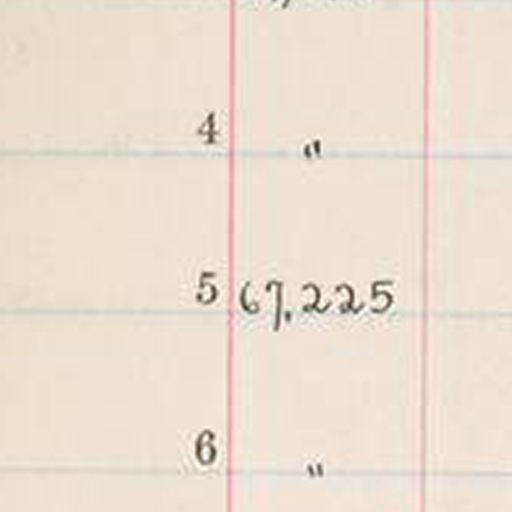 4 "
5 67,225
6 "